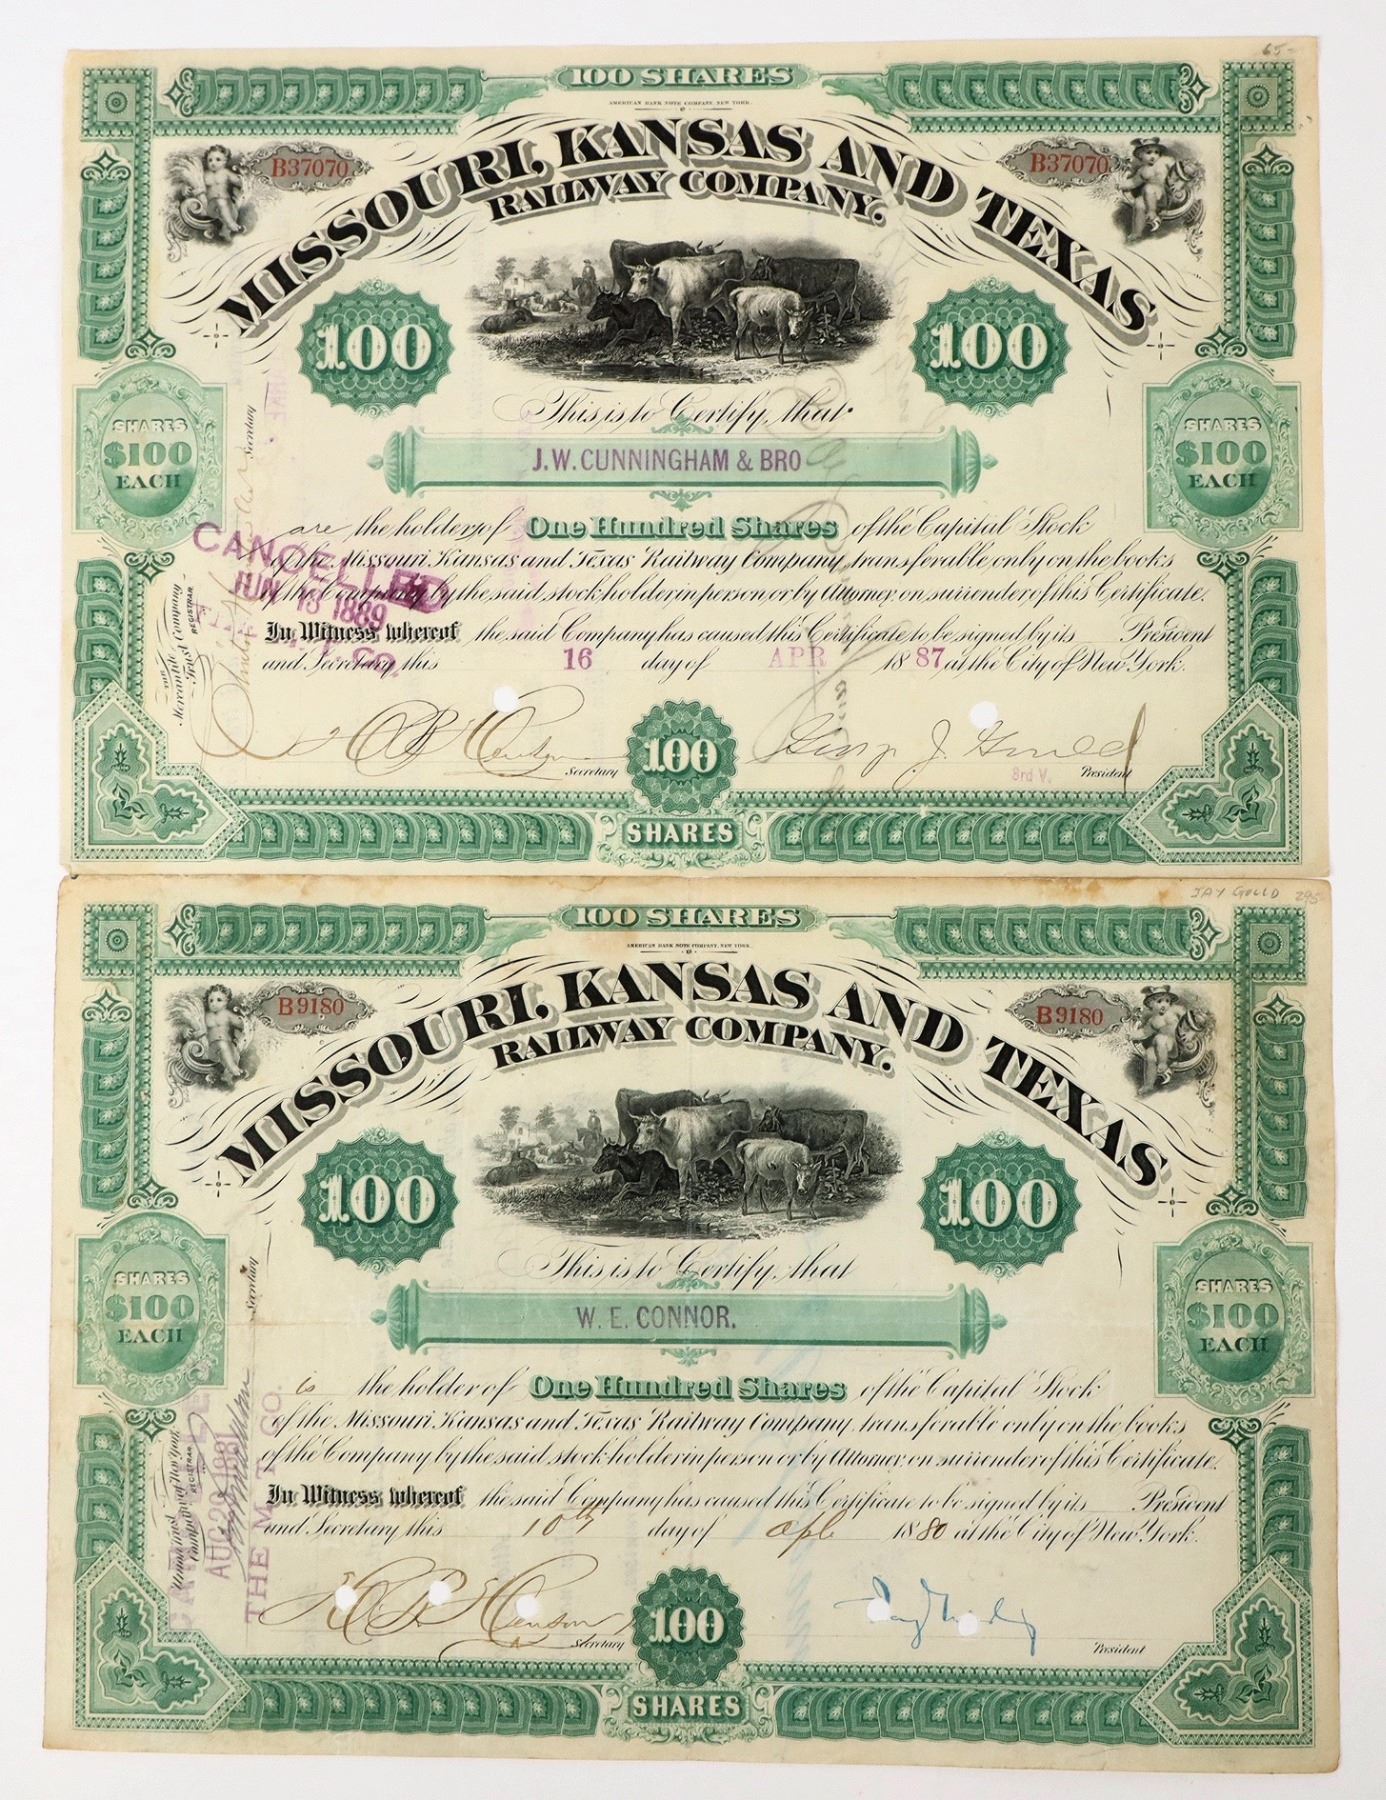 65-
100 SHARES
AMERICAN BANK NOTE COMPANY, NEW YORK.
B37070 B37070
MISSOURI, KANSAS AND TEXAS
RAILWAY COMPANY.
100 100
This is to Certify, that
SHARES $100 EACH
SHARES $100 EACH
Secretary
J.W. CUNNINGHAM & BRO
are the holders of One Hundred Shares of the Capital Stock
of the Missouri Kansas and Texas Railway Company, transferable only on the books
of the Company by the said stockholder, in person, or by Attorney, on surrender of this Certificate.
In Witness whereof the said Company has caused this Certificate to be signed by its President
and Secretary this 16 day of APR 1887 at the City of New York.
CANCELLED
JUN 13 1889
Co.
THE
Mercantile Trust Company
REGISTRAR
Secretary
George J. Gould
3rd V. President
100
SHARES
JAY GOULD 295-
100 SHARES
AMERICAN BANK NOTE COMPANY, NEW YORK.
B9180 B9180
MISSOURI, KANSAS AND TEXAS
RAILWAY COMPANY.
100 100
This is to Certify, that
SHARES $100 EACH
SHARES $100 EACH
Secretary
W. E. CONNOR.
is the holder of One Hundred Shares of the Capital Stock
of the Missouri, Kansas and Texas Railway Company, transferable only on the books
of the Company by the said stockholder in person or by Attorney, on surrender of this Certificate.
In Witness whereof the said Company has caused this Certificate to be signed by its President
and Secretary this 10th day of apl 1880 at the City of New York.
CANCELLED
AUG 29 1881
THE M. T. CO.
Union Trust Company of New York,
REGISTRAR
Secretary
Jay Gould
President
100
SHARES